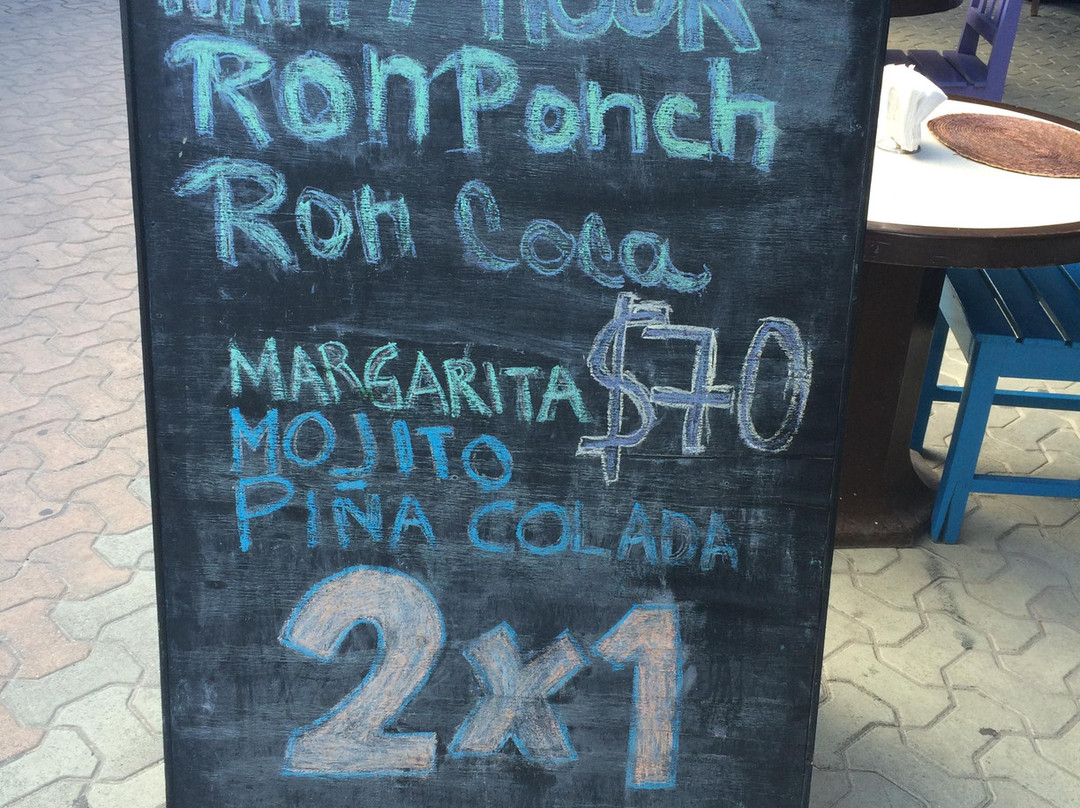 HAPPY HOUR
Ron Ponch
Ron Coca
MARGARITA $70
MOJITO
PIÑA COLADA
2x1